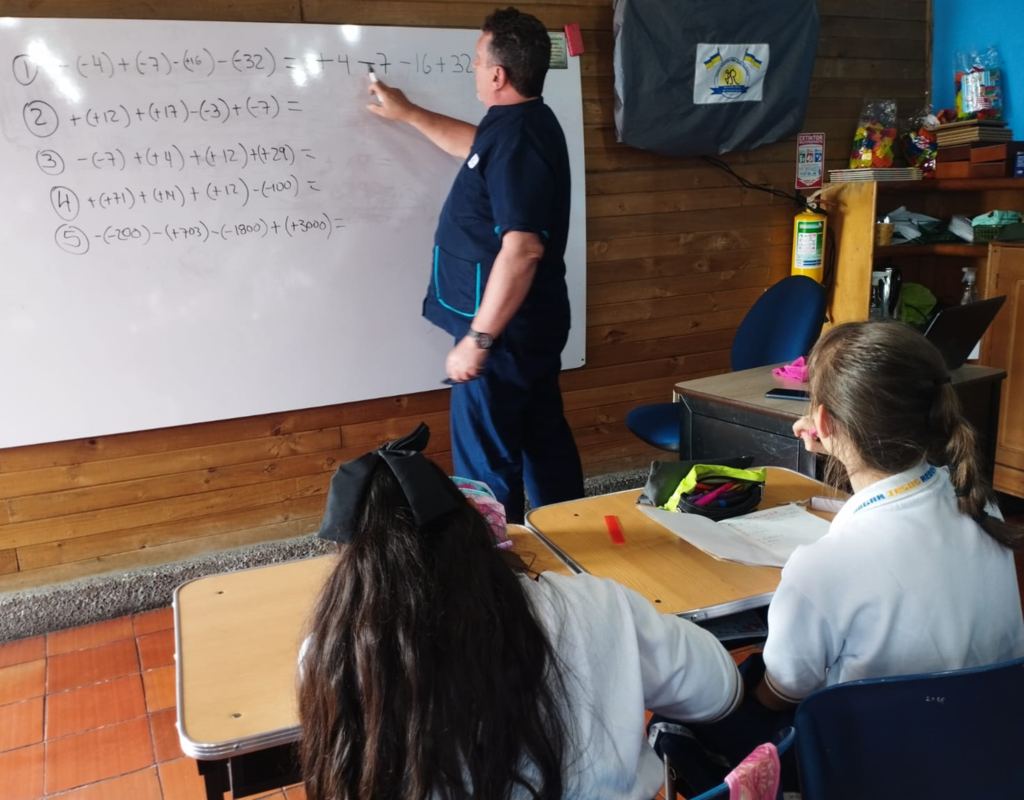 ① -(-4)+(-7)-(+16)-(-32) = +4-7-16+32
② +(+12)+(+17)-(-3)+(-7) =
③ -(-7)+(+4)+(+12)+(+29) =
④ +(+71)+(+14)+(+12)-(-100) =
⑤ -(-200)-(+703)-(-1800)+(+3000) =
EXTINTOR